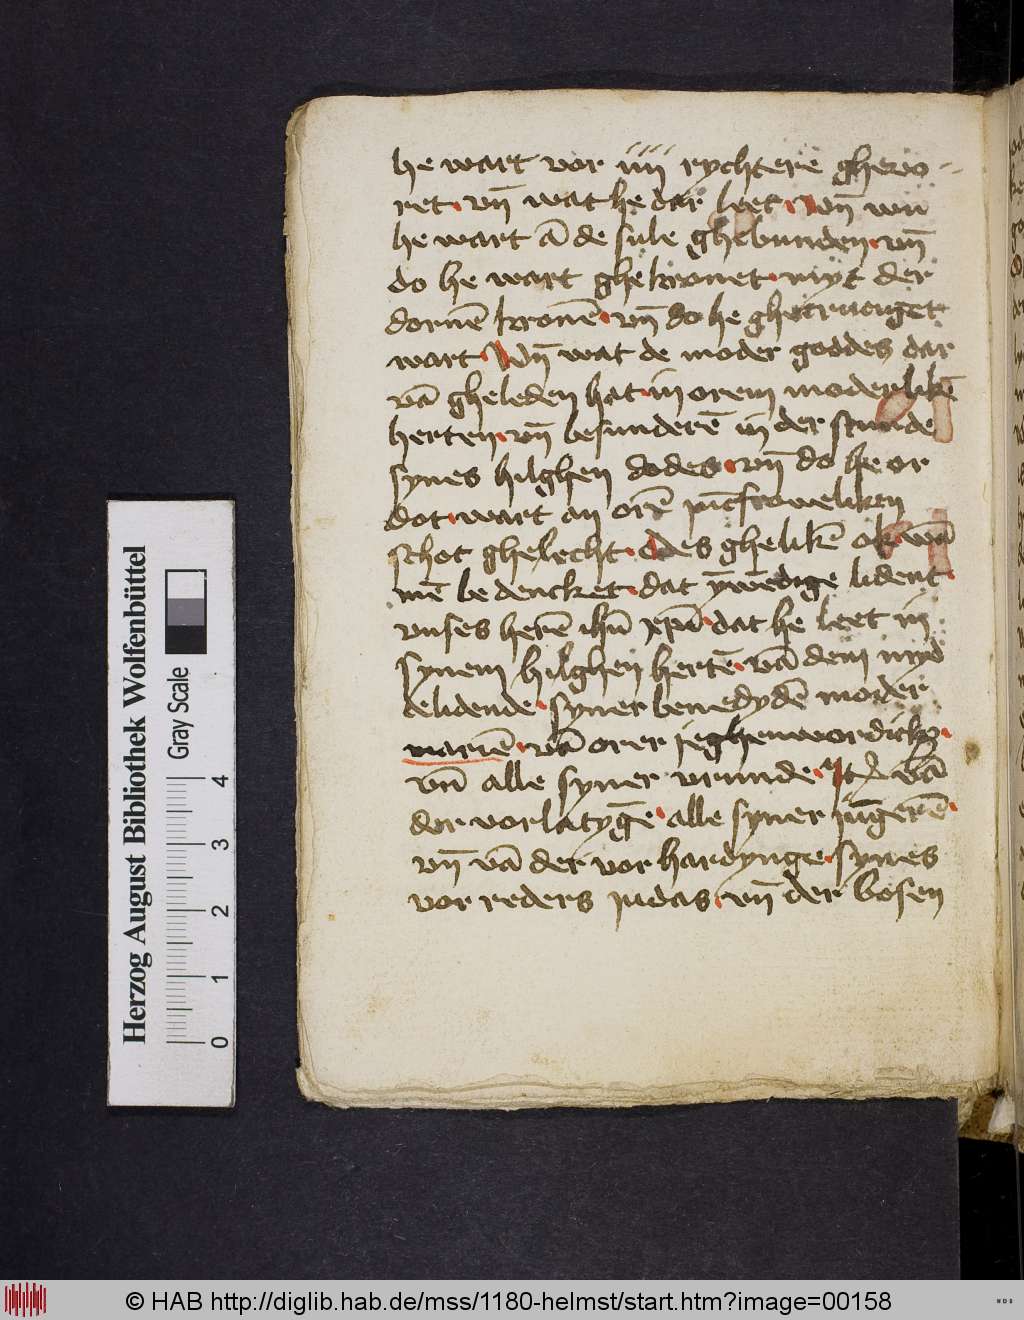 he wart vor iiii rychtere ghevo-
ret. vn̄ wat he dar leet. Vn̄ wu
he wart ā de sule ghebunden. vn̄
do he wart ghekronet. myt der
dornē kronē. vn̄ do he ghecruciget
wart. Vn̄ wat de moder goddes dar
vā gheleden hat. in orem moderlikē
herten. vn̄ besunderē in der stunde
synes hilghen dodes. vn̄ do he or
dot. wart an orē jūcfroweliken
schot ghelecht. des ghelikē ok vā
mē bedencket. dat ȳwēdige lident.
vnses herē ihū xpū. dat he leet in
synem hilghen hertē. vā dem myd
delidende. syner benedydē moder
mariē. vā orer jeghenwordich
vā alle syner vrunde. Itē vā
der vorlatygē. alle syner jūgerē.
vn̄ vā der vorhardynge. synes
vorreders judas. vn̄ der bosen
Herzog August Bibliothek Wolfenbüttel
Gray Scale
0 1 2 3 4
© HAB http://diglib.hab.de/mss/1180-helmst/start.htm?image=00158